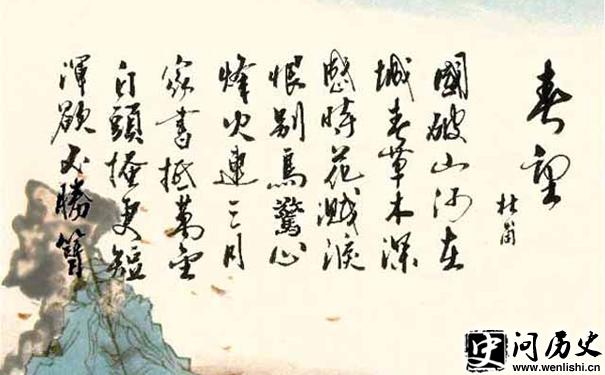 春望
杜甫
國破山河在
城春草木深
感時花濺淚
恨别鳥驚心
烽火連三月
家書抵萬金
白頭搔更短
渾欲不勝簪
史 问历史
www.wenlishi.cn